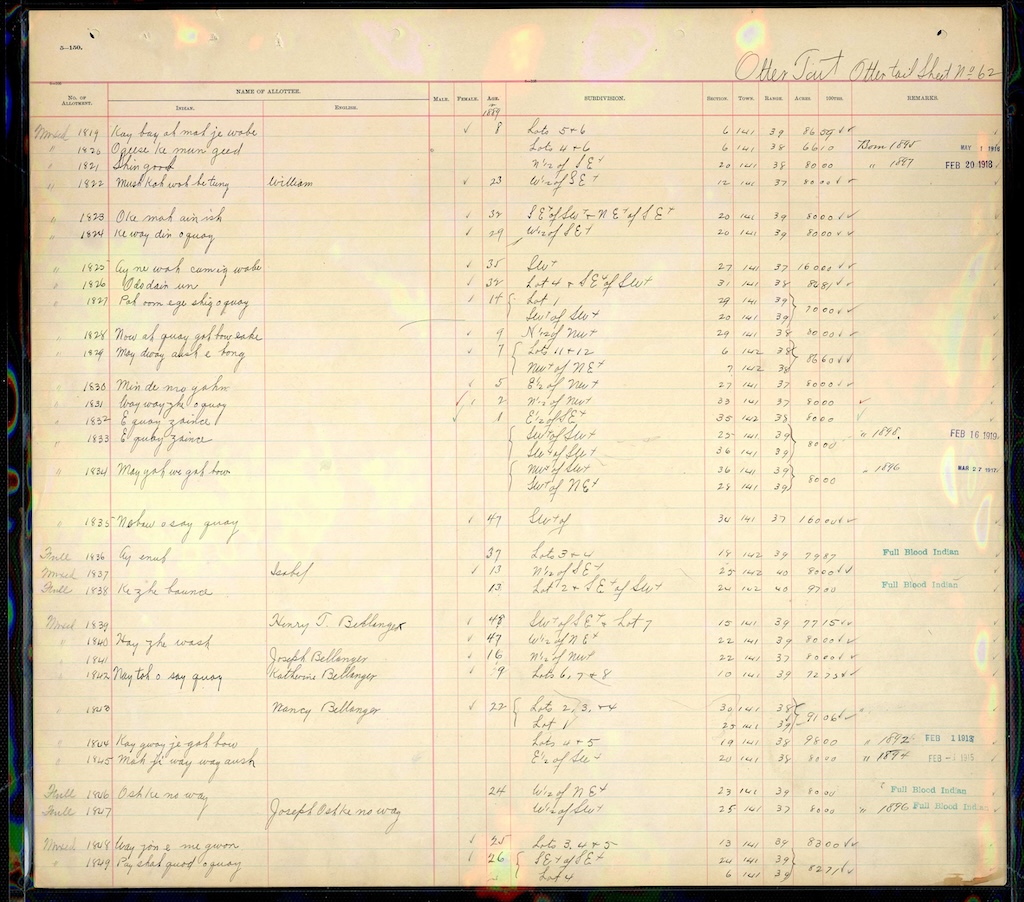 5—150.
Otter Tail Otter tail Sheet No 62
No. of Allotment. NAME OF ALLOTTEE. Male. Female. Age. SUBDIVISION. Section. Town. Range. Acres 100ths. REMARKS.
Indian. English. 1889
Mixed 1819 Kay bay ah mah je wabe 8 Lots 5 & 6 6 141 39 86 59
" 1820 Ogeese ke mun geed Lots 4 & 6 6 141 38 66 10 Born 1895 MAY 1 1916
" 1821 Shin good N 1/2 of SE 4 20 141 39 80 00 " 1897 FEB 20 1918
" 1822 Mush kah wah be tung William 23 W 1/2 of SE 4 12 141 37 80 00
" 1823 Oke mah ain ish 32 SE 4 of SW 4 & NE 4 of SE 4 20 141 39 80 00
" 1824 Ke way din o quay 29 W 1/2 of SE 4 20 141 39 80 00
" 1825 Ay ne wah cum ig wabe 35 SW 4 27 141 37 160 00
" 1826 32 Lot 4 & SE 4 of SW 4 31 141 38 86 81
" 1827 14 Lot 1 29 141 39
SW 4 of SW 4 20 141 39 70 00
" 1828 Now ah quay gah bow eake 9 N 1/2 of NW 4 29 141 38 80 00
" 1829 May dway aush e bong 7 Lots 11 & 12 6 142 38
NW 4 of NE 4 7 142 38 86 60
" 1830 5 E 1/2 of NW 4 27 141 37 80 00
" 1831 Way way zhe o quay 2 N 1/2 of NW 4 33 141 37 80 00
" 1832 E quay zaince 1 E 1/2 of SE 4 35 142 38 80 00
" 1833 E quay zaince SW 4 of SW 4 25 141 39 " 1898. FEB 16 1919
36 141 39 80 00
" 1834 May gah we gah bow NW 4 of SW 4 36 141 39 " 1896 MAR 27 1917
SW 4 of NE 4 28 141 39 80 00
" 1835 Ne baw o say quay 47 SW 4 of 34 141 37 160 00
Full 1836 37 Lots 3 & 4 18 142 39 79 87 Full Blood Indian
Mixed 1837 Isabel 13 N 1/2 of SE 4 25 142 40 80 00
Full 1838 Ke zhe baunce 13 Lot 2 & SE 4 of SW 4 24 142 40 97 00 Full Blood Indian
Mixed 1839 Henry T. Bellanger 48 SW 4 of SE 4 & Lot 7 15 141 39 77 15
" 1840 Hay zhe wash 47 W 1/2 of NE 4 22 141 39 80 00
" 1841 Joseph Bellanger 16 N 1/2 of NW 4 22 141 37 80 00
" 1842 Nay tah o say quay Katherine Bellanger 9 Lots 6, 7 & 8 10 141 39 72 75
" 1843 Nancy Bellanger 22 Lots 2, 3, & 4 30 141 38
Lot 1 25 141 39 91 06
" 1844 Kay gway je gah bow Lots 4 & 5 19 141 38 98 00 " 1892 FEB 1 1913
" 1845 Mah ji way way aush E 1/2 of SW 4 20 141 38 80 00 " 1894 FEB -1 1915
Full 1846 Osh ke no way 24 W 1/2 of NE 4 23 141 39 80 00 Full Blood Indian
Full 1847 Joseph Osh ke no way W 1/2 of SW 4 25 141 37 80 00 " 1896 Full Blood Indian
Mixed 1848 Way zon e me gwon 25 Lots 3, 4 & 5 13 141 39 83 00
" 1849 Pay shah quod o quay 26 SE 4 of SE 4 24 141 39
Lot 4 6 141 39 82 71